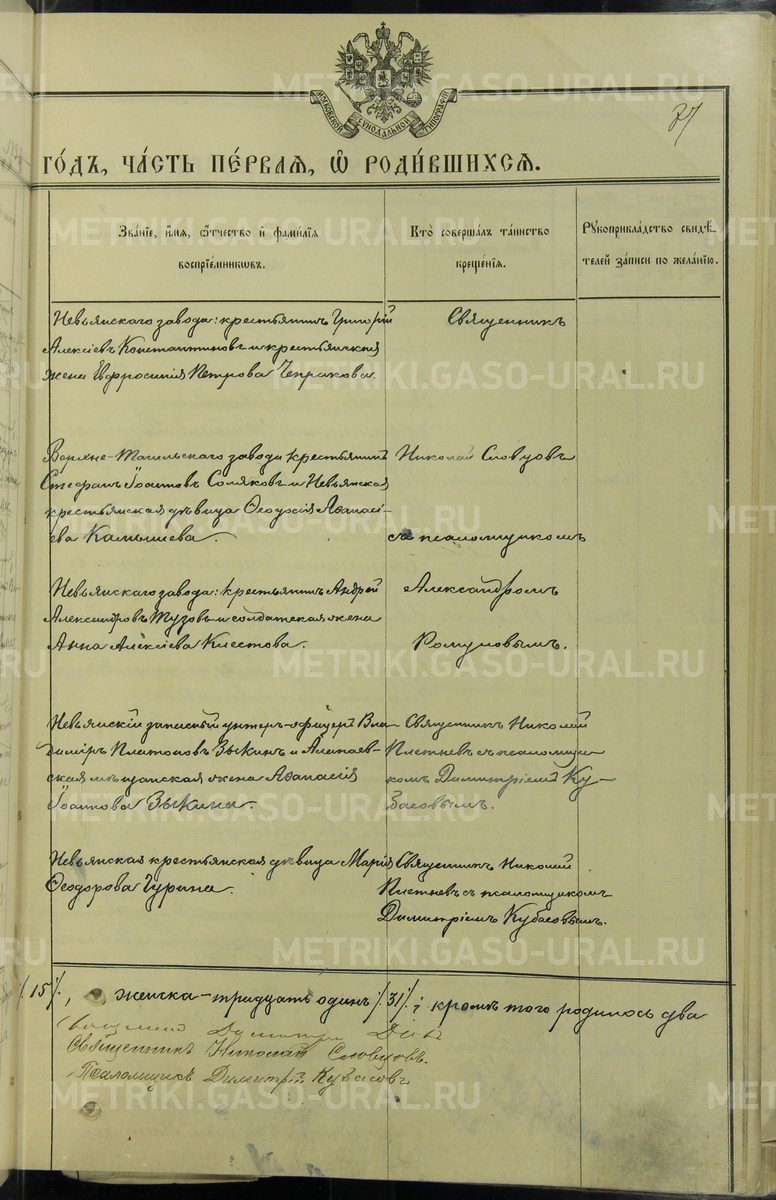 МОСКОВСКОЙ СѴНОДАЛЬНОЙ ТИПОГРАФІИ
ГОДЪ, ЧАСТЬ ПЕРВАЯ, Ѽ РОДИВШИХСЯ.
Званіе, имя, ѻтчество и фамилія воспріемникѡвъ.
Кто совершалъ таинство крещенія.
Рукоприкладство свидѣтелей записи по желанію.
Невьянскаго завода: крестьянинъ Григорій
Алексіевъ Константиновъ и крестьянская
жена Евфросинія Петрова Чепракова.
Священникъ
Верхне-Тагильскаго завода крестьянинъ
Стефанъ Іоанновъ Соляковъ и Невьянская
крестьянская дѣвица Ѳеодосія Аѳанасі-
ева Камышева.
Николай Словцовъ
съ псаломщикомъ
Невьянскаго завода: крестьянинъ Андрей
Александровъ Тузовъ и солдатская жена
Анна Алексіева Клестова.
Александромъ
Ромуловымъ.
Невьянскій запасный унтеръ-офицеръ Вла-
диміръ Платоновъ Зыкинъ и Алапаев-
ская мѣщанская жена Аѳанасія
Іоаннова Зыкина.
Священникъ Николай
Плетневъ съ псаломщи-
комъ Димитріемъ Ку-
басовымъ.
Невьянская крестьянская дѣвица Марія
Ѳеодорова Гурина.
Священникъ Николай
Плетневъ съ псаломщикомъ
Димитріемъ Кубасовымъ.
/15/, женска – тридцать одинъ /31/; кромѣ того родилось два
Священникъ Николай Словцовъ.
Псаломщикъ Димитрій Кубасовъ
METRIKI.GASO-URAL.RU